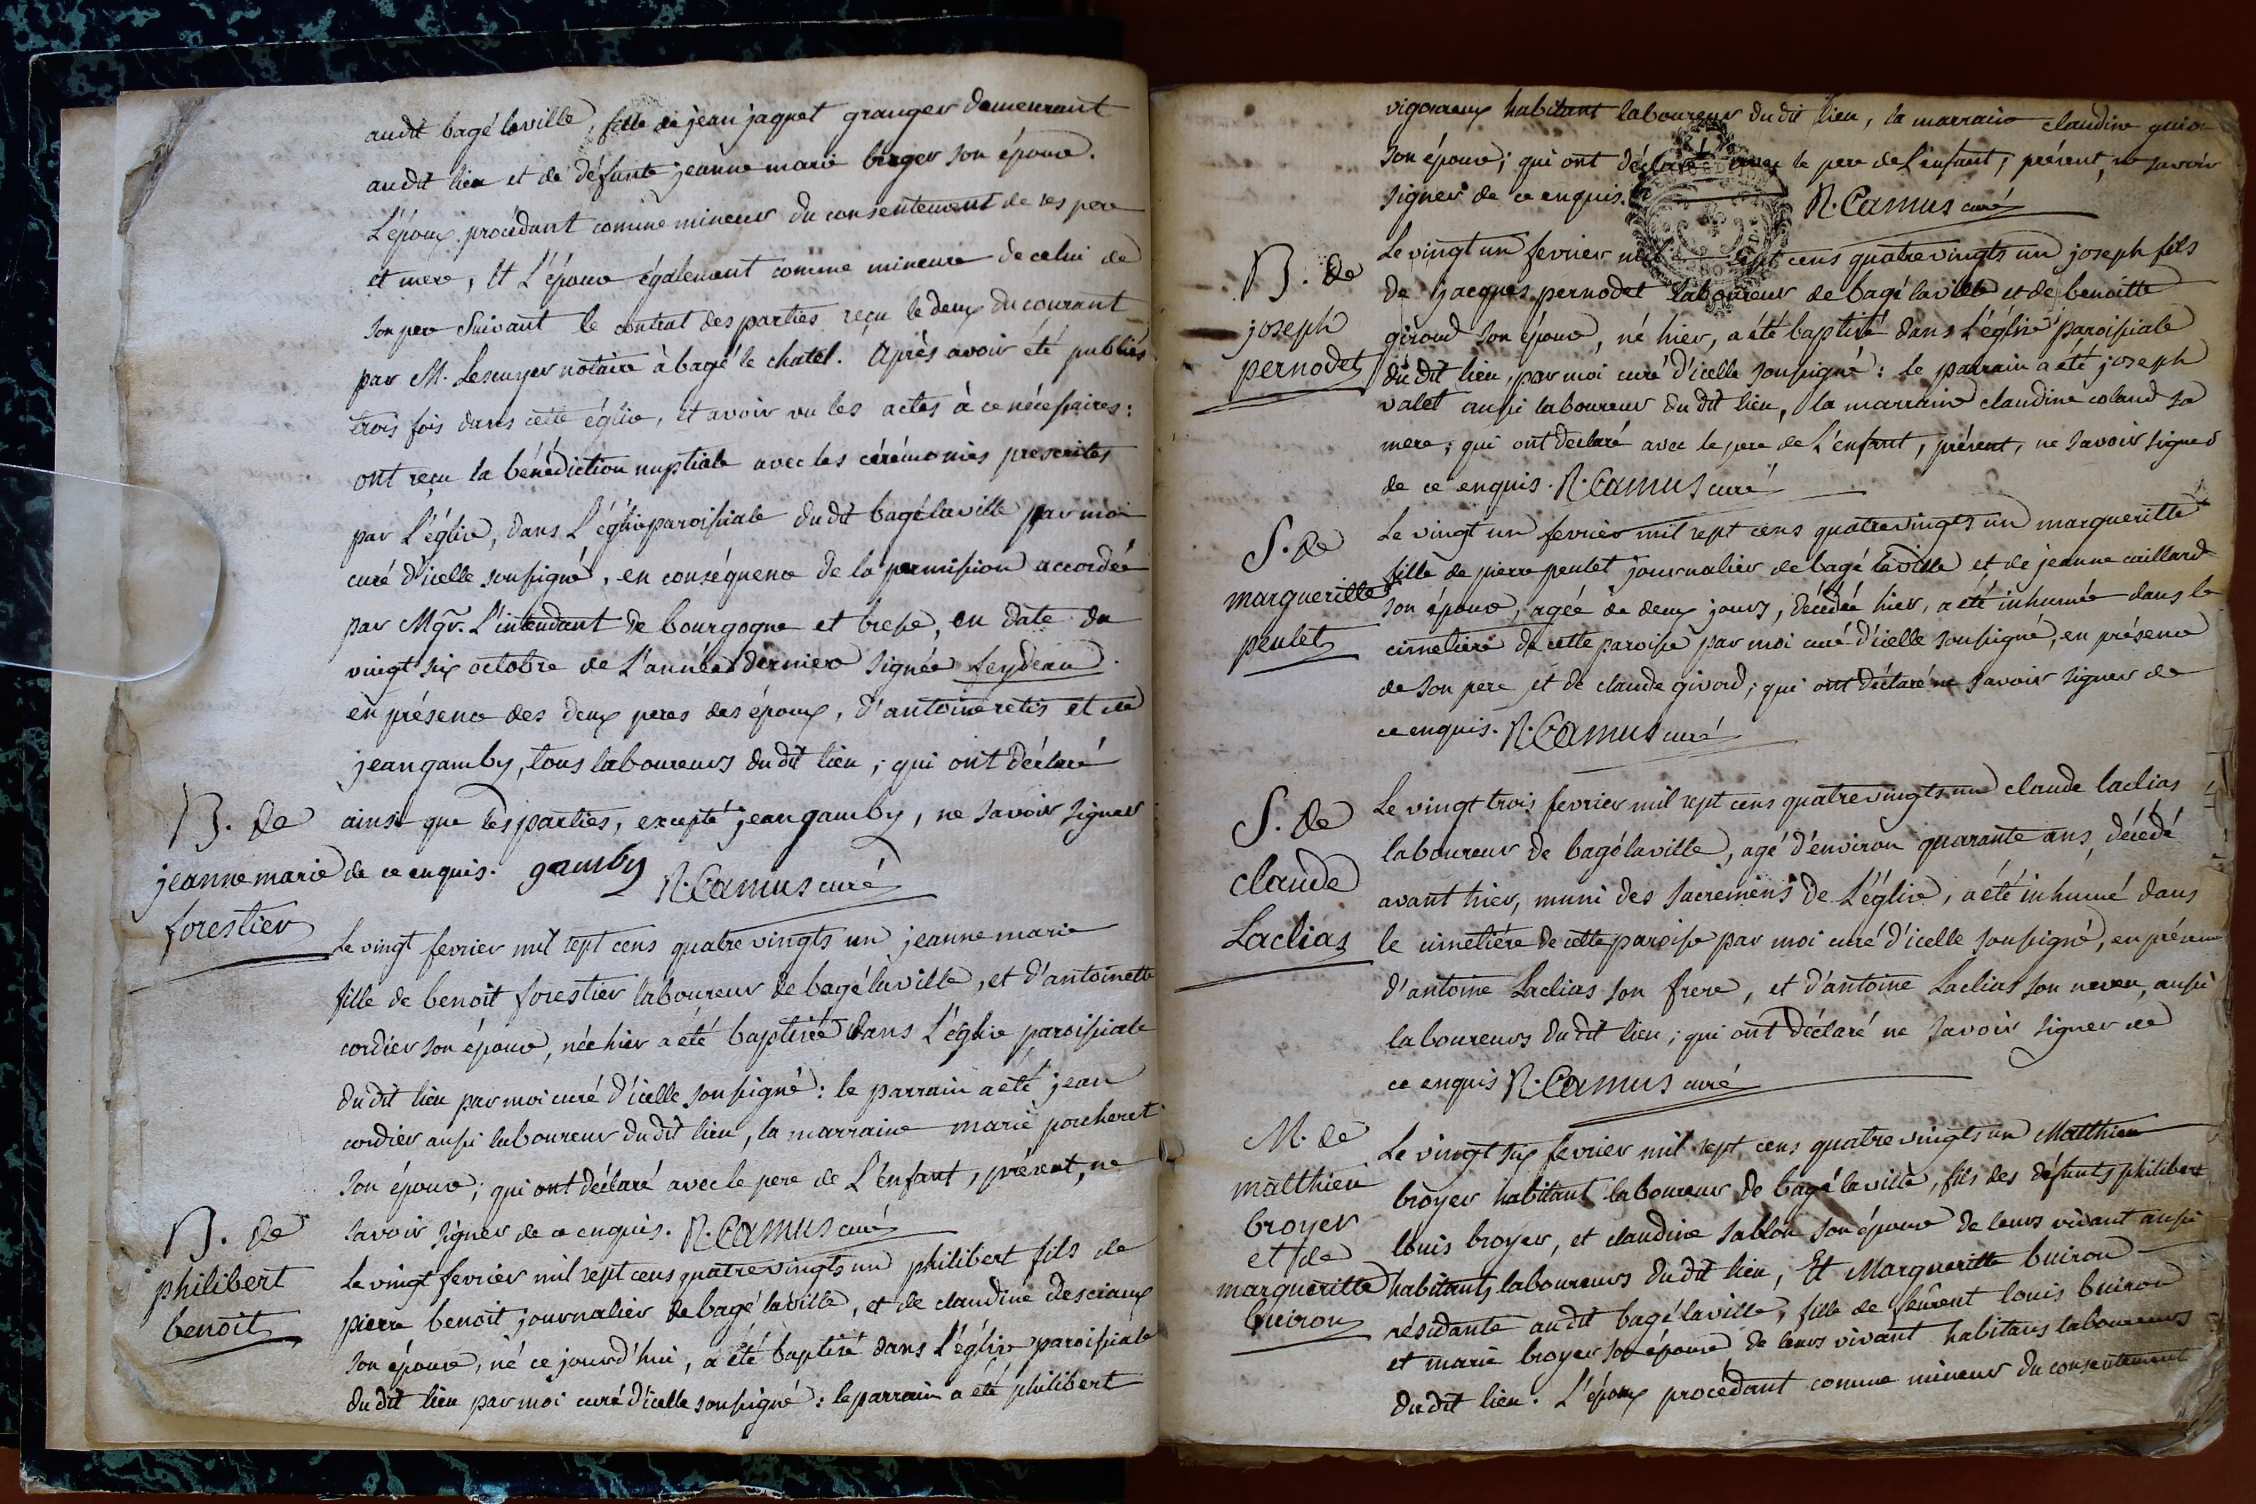 audit bagé laville, fille de jean jaquet granger demeurant
audit lieu et de défunte jeanne marie berger son épouse.
L'époux procédant comme mineur du consentement de ses pere
et mere, Et L'épouse également comme mineure de celui de
son pere suivant le contrat des parties reçu le deux du courant
par M. Lescuyer notaire à bagé le chatel. Après avoir été publiés
trois fois dans cette église, et avoir vu les actes à ce nécessaires:
ont reçu la bénédiction nuptiale avec les cérémonies prescrites
par L'église, dans L'église paroissiale dudit bagé laville par moi
curé d'icelle soussigné, en conséquence de la permission accordée
par Mgr. L'intendant de bourgogne et bresse, en date du
vingt six octobre de L'année derniere signée
en présence des deux peres des époux, d'antoine retis et de
jean gamby, tous laboureurs dudit lieu; qui ont déclaré
ainsi que les parties, excepté jean gamby, ne savoir signer
de ce enquis. gamby R. Camus curé
B. de
jeanne marie
forestier
Le vingt fevrier mil sept cens quatre vingts un jeanne marie
fille de benoit forestier laboureur de bagé laville, et d'antoinette
cordier son épouse, née hier a été baptisée dans L'église paroissiale
dudit lieu par moi curé d'icelle soussigné: le parrain a été jean
cordier aussi laboureur dudit lieu, la marraine marie porcheret
son épouse; qui ont déclaré avec le pere de L'enfant, présent, ne
savoir signer de ce enquis. R. Camus curé
B. de
philibert
benoit
Le vingt fevrier mil sept cens quatre vingts un philibert fils de
pierre benoit journalier de bagé laville, et de claudine desciaux
son épouse, né ce jourd'hui, a été baptisé dans L'église paroissiale
dudit lieu par moi curé d'icelle soussigné: le parrain a été philibert
vigoureux habitant laboureur dudit lieu, la marraine claudine
son épouse; qui ont déclaré avec le pere de L'enfant, présent, ne savoir
signer de ce enquis. R. Camus curé
B. de
joseph
pernodet
Le vingt un fevrier mil sept cens quatre vingts un joseph fils
de jacques pernodet laboureur de bagé laville et de benoitte
giroud son épouse, né hier, a été baptisé dans L'église paroissiale
dudit lieu, par moi curé d'icelle soussigné: le parrain a été joseph
valet aussi laboureur dudit lieu, la marraine claudine coland sa
mere; qui ont déclaré avec le pere de L'enfant, présent, ne savoir signer
de ce enquis. R. Camus curé
S. de
margueritte
peulet
Le vingt un fevrier mil sept cens quatre vingts un margueritte
fille de pierre peulet journalier de bagé laville et de jeanne caillard
son épouse, agée de deux jours, décédée hier, a été inhumée dans le
cimetiére de cette paroisse par moi curé d'icelle soussigné, en présence
de son pere et de claude givord; qui ont déclaré ne savoir signer de
ce enquis. R. Camus curé
S. de
claude
Laclias
Le vingt trois fevrier mil sept cens quatre vingts un claude laclias
laboureur de bagé laville, agé d'environ quarante ans, décédé
avant hier, muni des sacremens de L'église, a été inhumé dans
le cimetiére de cette paroisse par moi curé d'icelle soussigné, en présence
d'antoine Laclias son frere, et d'antoine Laclias son neveu, aussi
laboureurs dudit lieu; qui ont déclaré ne savoir signer de
ce enquis R. Camus curé
M. de
matthieu
broyer
et de
margueritte
buiron
Le vingt six fevrier mil sept cens quatre vingts un Matthieu
broyer habitant laboureur de bagé laville, fils des défunts philibert
louis broyer, et claudine sablon son épouse de leurs vivant aussi
habitants laboureurs dudit lieu, Et Margueritte buiron
résidante audit bagé laville, fille de feurent louis buiron
et marie broyer son épouse de leurs vivant habitans laboureurs
dudit lieu. L'époux procédant comme mineur du consentement